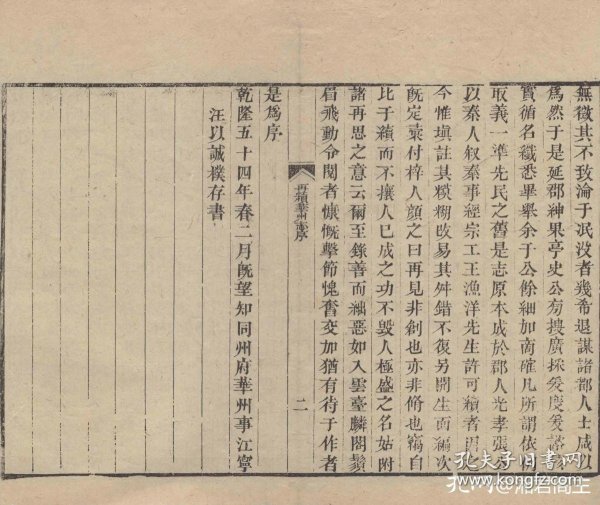 無徵其不致淪于泯沒者幾希退謀諸郡人士咸以
爲然于是延郡紳果亭史公旁搜廣採爰度爰諮
實循名纖悉畢舉余于公餘細加商確凡所謂依
取義一準先民之舊是志原本成於郡人光孝張公
以秦人叙秦事經宗工王漁洋先生許可續者
今惟填註其糢糊改易其舛錯不復另開生面編次
既定棗付梓人顔之曰再見非創也亦非脩也竊自
比于續而不攘人已成之功不毀人極盛之名姑附
諸再思之意云爾至錄善而紬惡如入雲臺麟閣鬚
眉飛動令閱者慷慨擊節愧奮交加猶有待于作者
再續華州志序
二
是爲序
乾隆五十四年春二月既望知同州府華州事江寧
汪以誠樸存書
孔夫子旧书网
www.kongfz.com